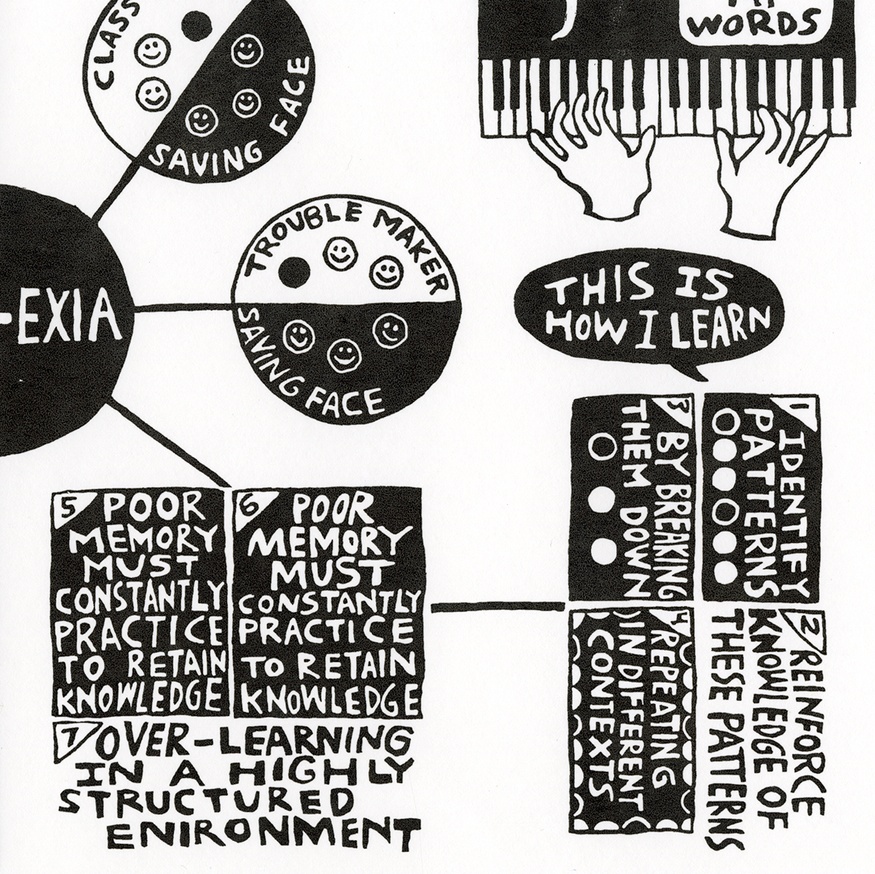 CLASS
SAVING FACE
WORDS
-EXIA
TROUBLE MAKER
SAVING FACE
THIS IS
HOW I LEARN
1 IDENTIFY
PATTERNS
2 REINFORCE
KNOWLEDGE OF
THESE PATTERNS
3 BY BREAKING
THEM DOWN
4 REPEATING
IN DIFFERENT
CONTEXTS
5 POOR
MEMORY
MUST
CONSTANTLY
PRACTICE
TO RETAIN
KNOWLEDGE
6 POOR
MEMORY
MUST
CONSTANTLY
PRACTICE
TO RETAIN
KNOWLEDGE
7 OVER-LEARNING
IN A HIGHLY
STRUCTURED
ENIRONMENT